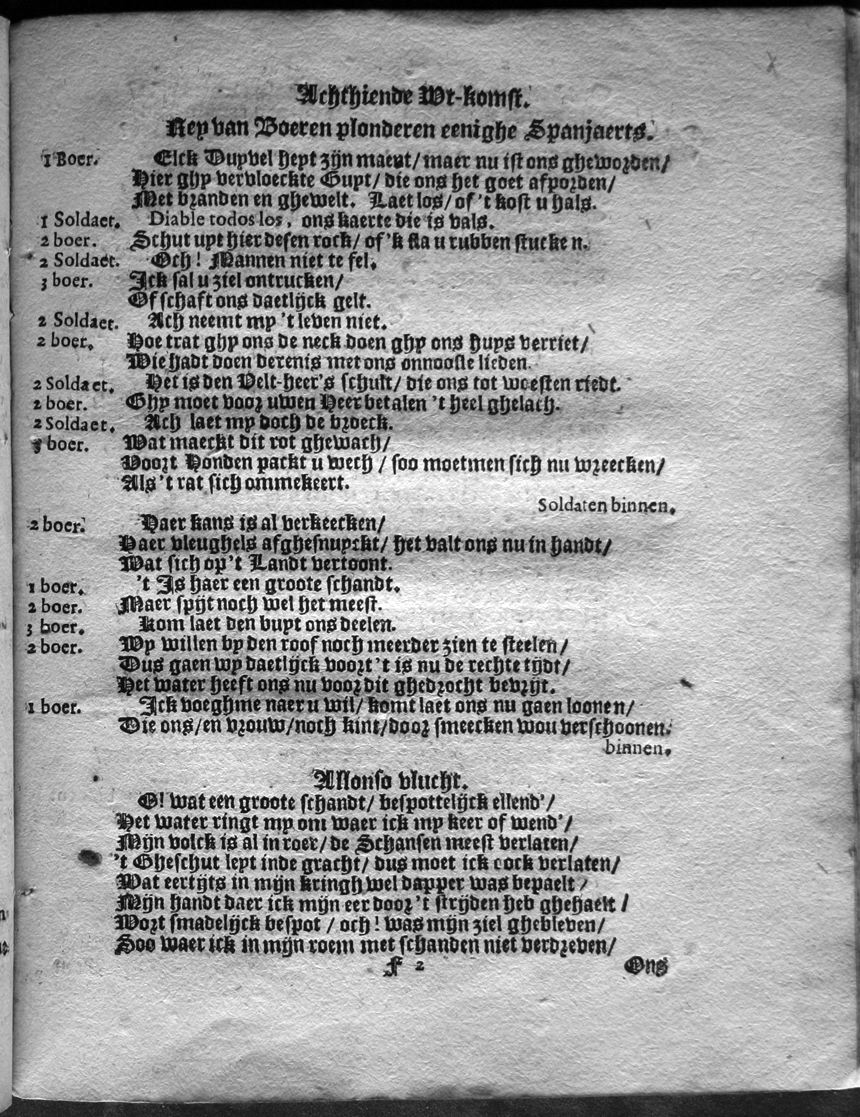 Achthiende Wt-komst.
Rey van Boeren plonderen eenighe Spanjaerts.
1 Boer. Elck Duyvel heyt zijn maent/ maer nu ist ons gheworden/
Hier ghy vervloeckte Guyt/ die ons het goet afporden/
Met branden en ghewelt. Laet los/ of 't kost u hals.
1 Soldaet. Diable todos los, ons kaerte die is vals.
2 boer. Schut uyt hier desen rock/ of 'k sla u rubben stucken.
2 Soldaet. Och! Mannen niet te fel.
3 boer. Ick sal u ziel ontrucken/
Of schaft ons daetlijck gelt.
2 Soldaet. Ach neemt my 't leven niet.
2 boer. Hoe trat ghy ons de neck doen ghy ons huys verriet/
Wie hadt doen derenis met ons onnoosle lieden.
2 Soldaet. Het is den Velt-heer's schult/ die ons tot woesten riedt.
2 boer. Ghy moet voor uwen Heer betalen 't heel ghelach.
2 Soldaet. Ach laet my doch de broeck.
3 boer. Wat maeckt dit rot ghewach/
Voort Honden packt u wech / soo moetmen sich nu wreecken/
Als 't rat sich ommekeert.
Soldaten binnen.
2 boer. Haer kans is al verkeecken/
Haer vleughels afghesnuyckt/ het valt ons nu in handt/
Wat sich op 't Landt vertoont.
1 boer. 't Is haer een groote schandt.
2 boer. Maer spijt noch wel het meest.
3 boer. Kom laet den buyt ons deelen.
2 boer. Wy willen by den roof noch meerder zien te steelen/
Dus gaen wy daetlijck voort 't is nu de rechte tijdt/
Het water heeft ons nu voor dit ghedrocht bevrijt.
1 boer. Ick voeghme naer u wil/ komt laet ons nu gaen loonen/
Die ons/en vrouw/noch kint/door smeecken wou verschoonen.
binnen.
Alfonso vlucht.
O! wat een groote schandt/ bespottelijck ellend'/
Het water ringt my om waer ick my keer of wend'/
Mijn volck is al in roer/ de Schansen meest verlaten/
't Gheschut leyt inde gracht/ dus moet ick oock verlaten/
Wat eertijts in mijn kringh wel dapper was bepaelt/
Mijn handt daer ick mijn eer door 't strijden heb ghehaelt/
Wort smadelijck bespot / och! was mijn ziel ghebleven/
Soo waer ick in mijn roem met schanden niet verdreven/
F 2 Ons